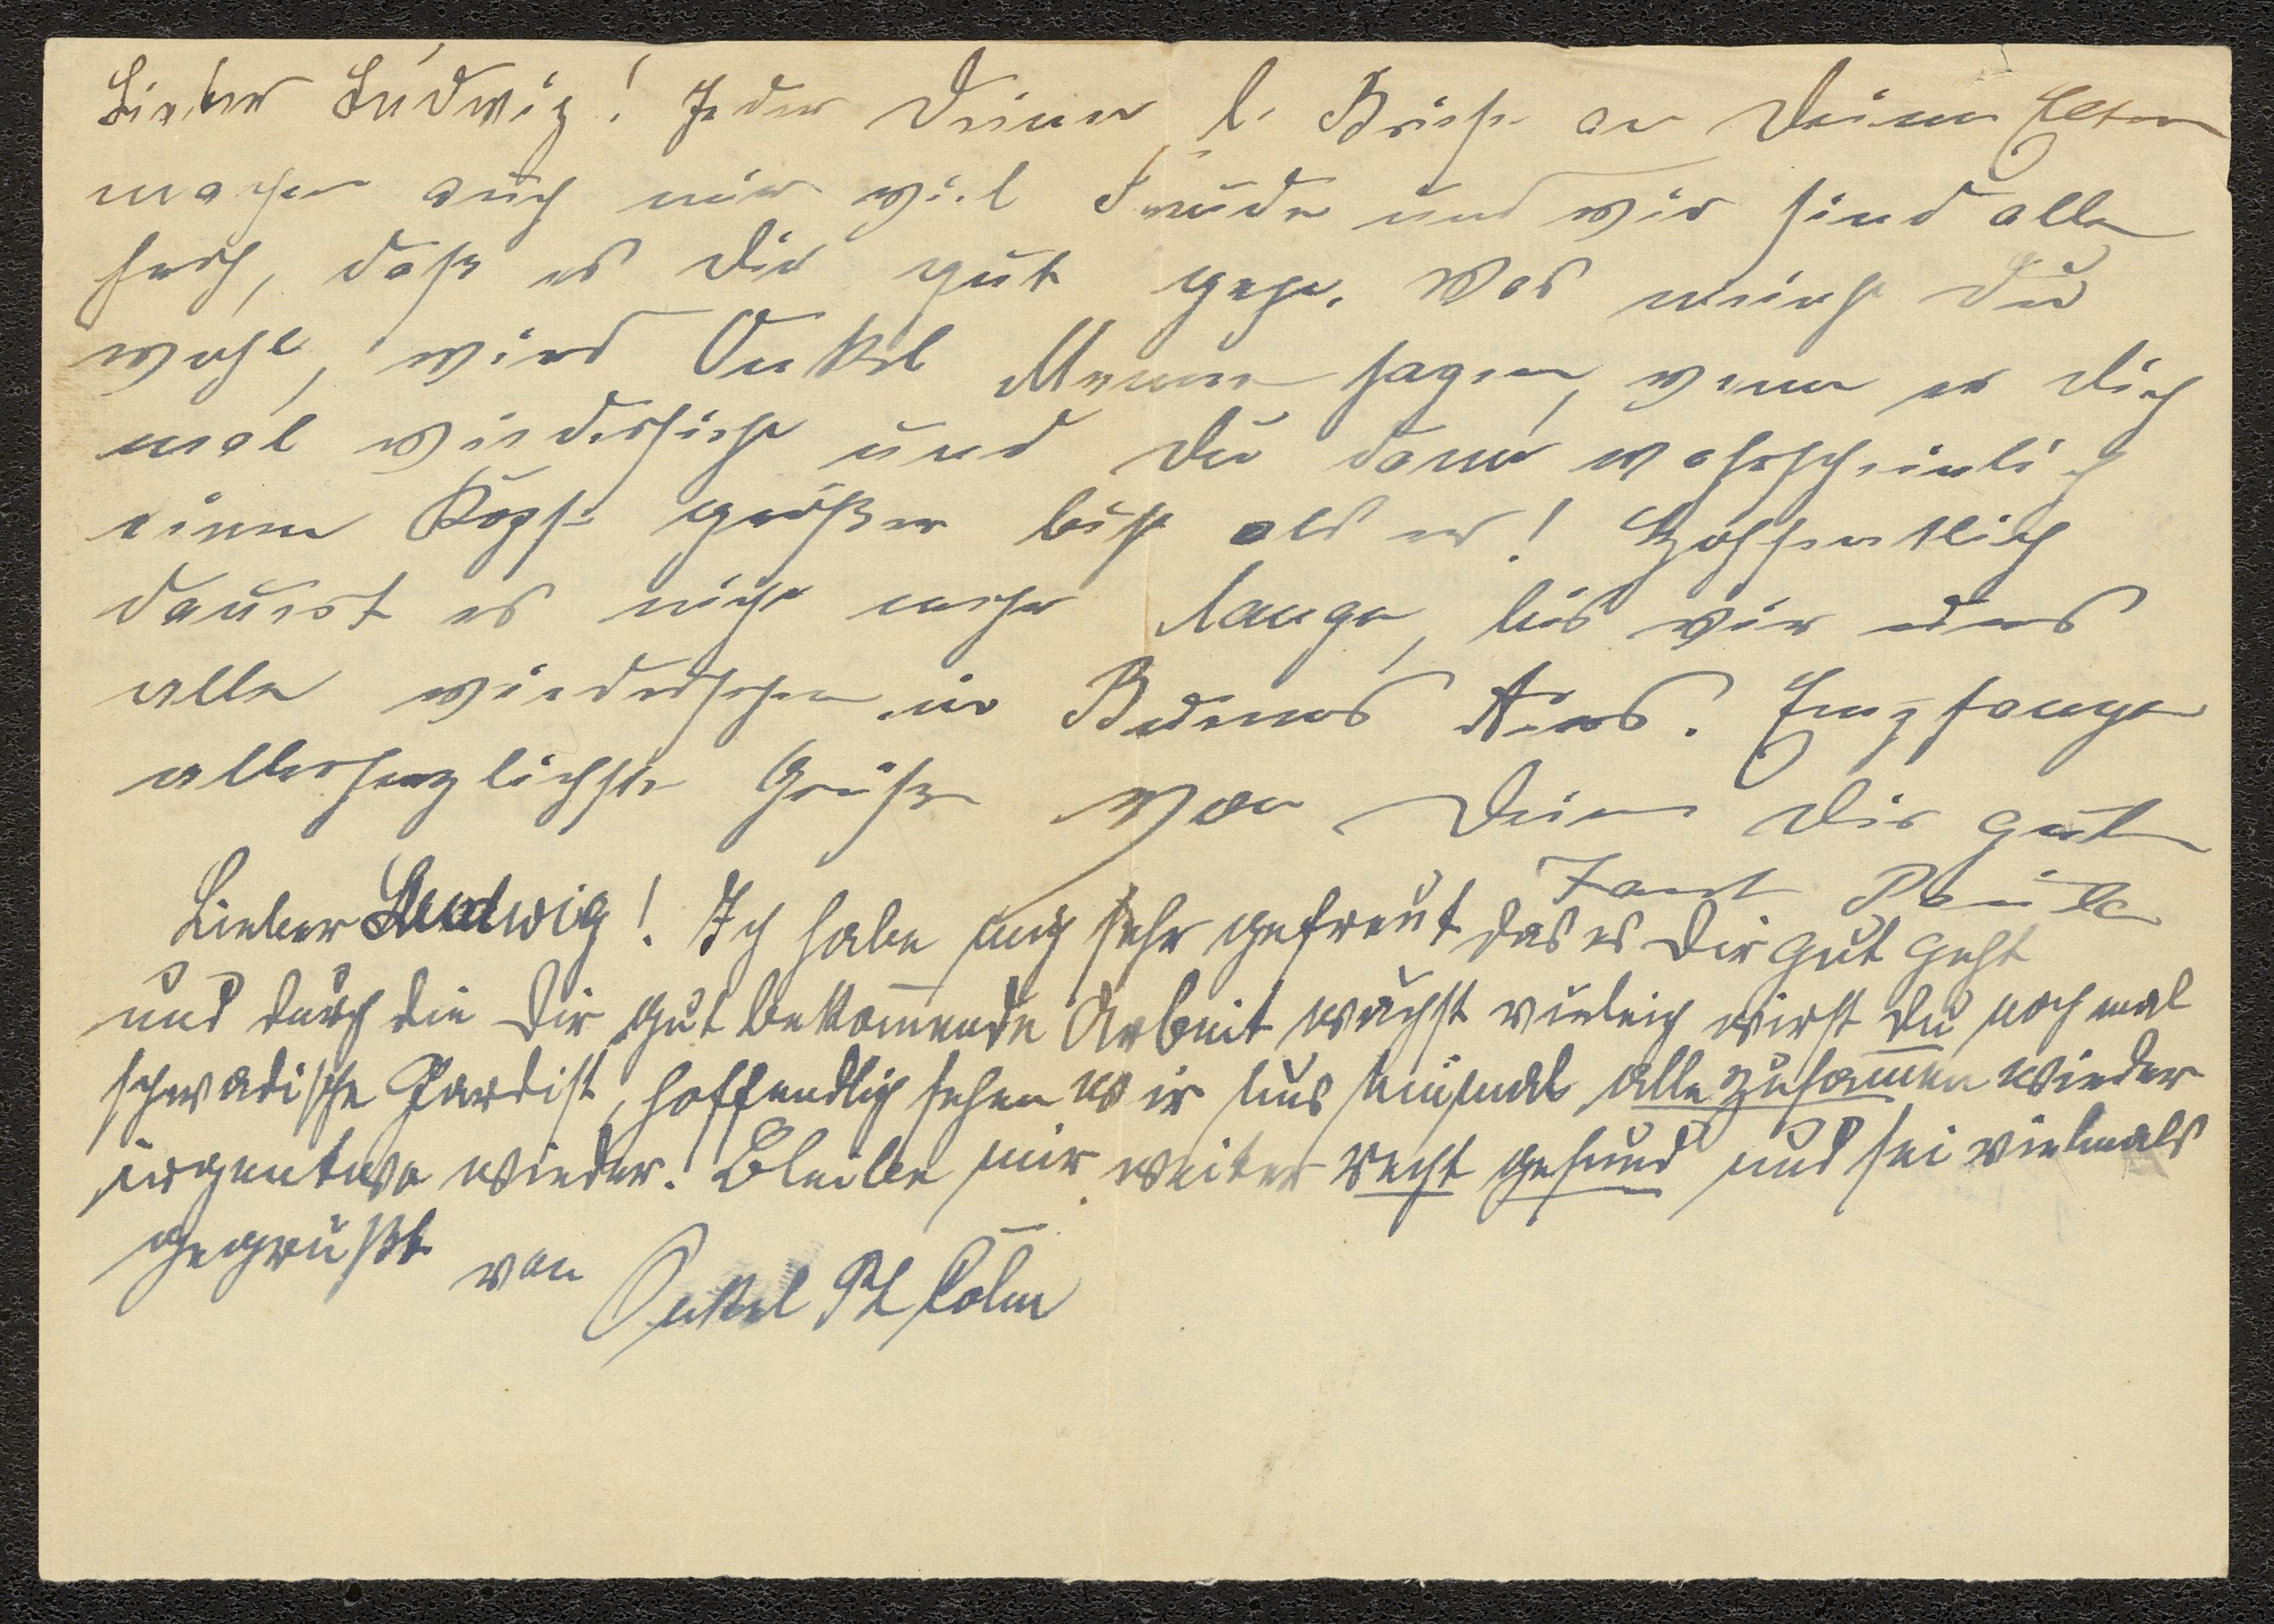 Lieber Ludwig! Jeder Deiner l. Briefe an Deine Eltern
machen auch mir viel Freude und wir sind alle
froh, daß es Dir gut geht. Was meinst Du
wohl, wird Onkel sagen, wenn er Dich
mal wiedersieht und Du dann wahrscheinlich
einen Kopf größer bist als er! Hoffentlich
dauert es nicht mehr lange, bis wir uns
alle wiedersehen in Buenos Aires. Empfange
allerherzlichste Grüße von Deiner Dir guten
Tante Paula
Lieber Ludwig! Ich habe mich sehr gefreut das es Dir gut geht
und durch die Dir gut bekommende Arbeit wächst vieleich wirst Du noch mal
schwedische Gardist, hoffendlich sehen wir uns einmal alle zusammen wieder
irgentwo wieder! Bleibe mir weiter recht gesund und sei vielmals
gegrüßt von Onkel